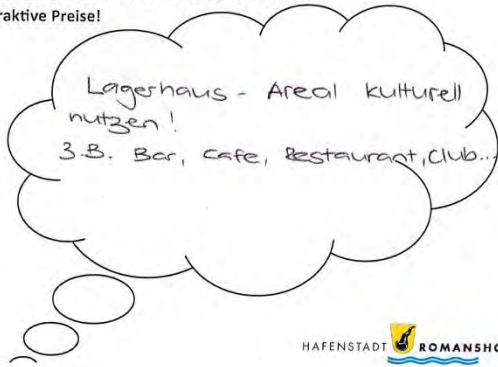 raktive Preise!
Lagerhaus - Areal kulturell
nutzen!
z.B. Bar, Cafe, Restaurant, Club...
HAFENSTADT ROMANSHO